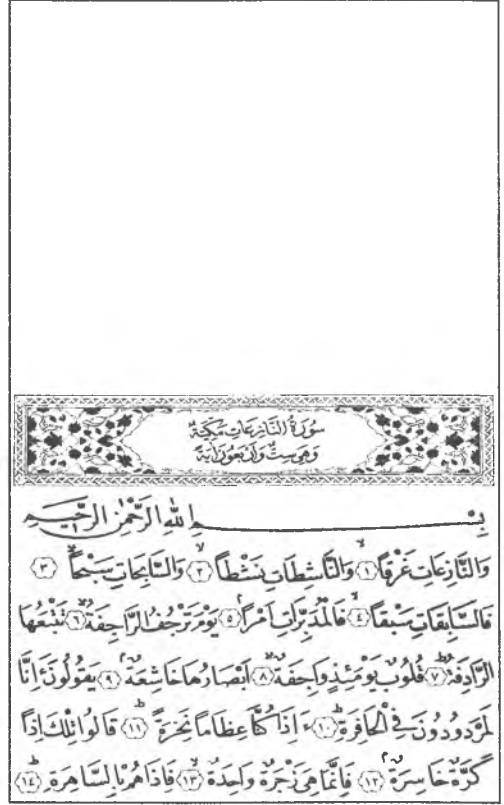 سُورَةُ النَّازِعَاتِ مَكِّيَّةٌ
وَهِىَ سِتٌّ وَاَرْبَعُونَ اٰيَةً
بِسْمِ اللهِ الرَّحْمٰنِ الرَّحِيمِ
وَالنَّازِعَاتِ غَرْقاًۙ ﴿١﴾ وَالنَّاشِطَاتِ نَشْطاًۙ ﴿٢﴾ وَالسَّابِحَاتِ سَبْحاًۙ ﴿٣﴾
فَالسَّابِقَاتِ سَبْقاًۙ ﴿٤﴾ فَالْمُدَبِّرَاتِ اَمْراًۢ ﴿٥﴾ يَوْمَ تَرْجُفُ الرَّاجِفَةُۙ ﴿٦﴾ تَتْبَعُهَا
الرَّادِفَةُۜ ﴿٧﴾ قُلُوبٌ يَوْمَئِذٍ وَاجِفَةٌۙ ﴿٨﴾ اَبْصَارُهَا خَاشِعَةٌۢ ﴿٩﴾ يَقُولُونَ ءَاِنَّا
لَمَرْدُودُونَ فِى الْحَافِرَةِۜ ﴿١٠﴾ ءَاِذَا كُنَّا عِظَاماً نَخِرَةًۜ ﴿١١﴾ قَالُوا تِلْكَ اِذاً
كَرَّةٌ خَاسِرَةٌۢ ﴿١٢﴾ فَاِنَّمَا هِىَ زَجْرَةٌ وَاحِدَةٌۙ ﴿١٣﴾ فَاِذَا هُمْ بِالسَّاهِرَةِۜ ﴿١٤﴾